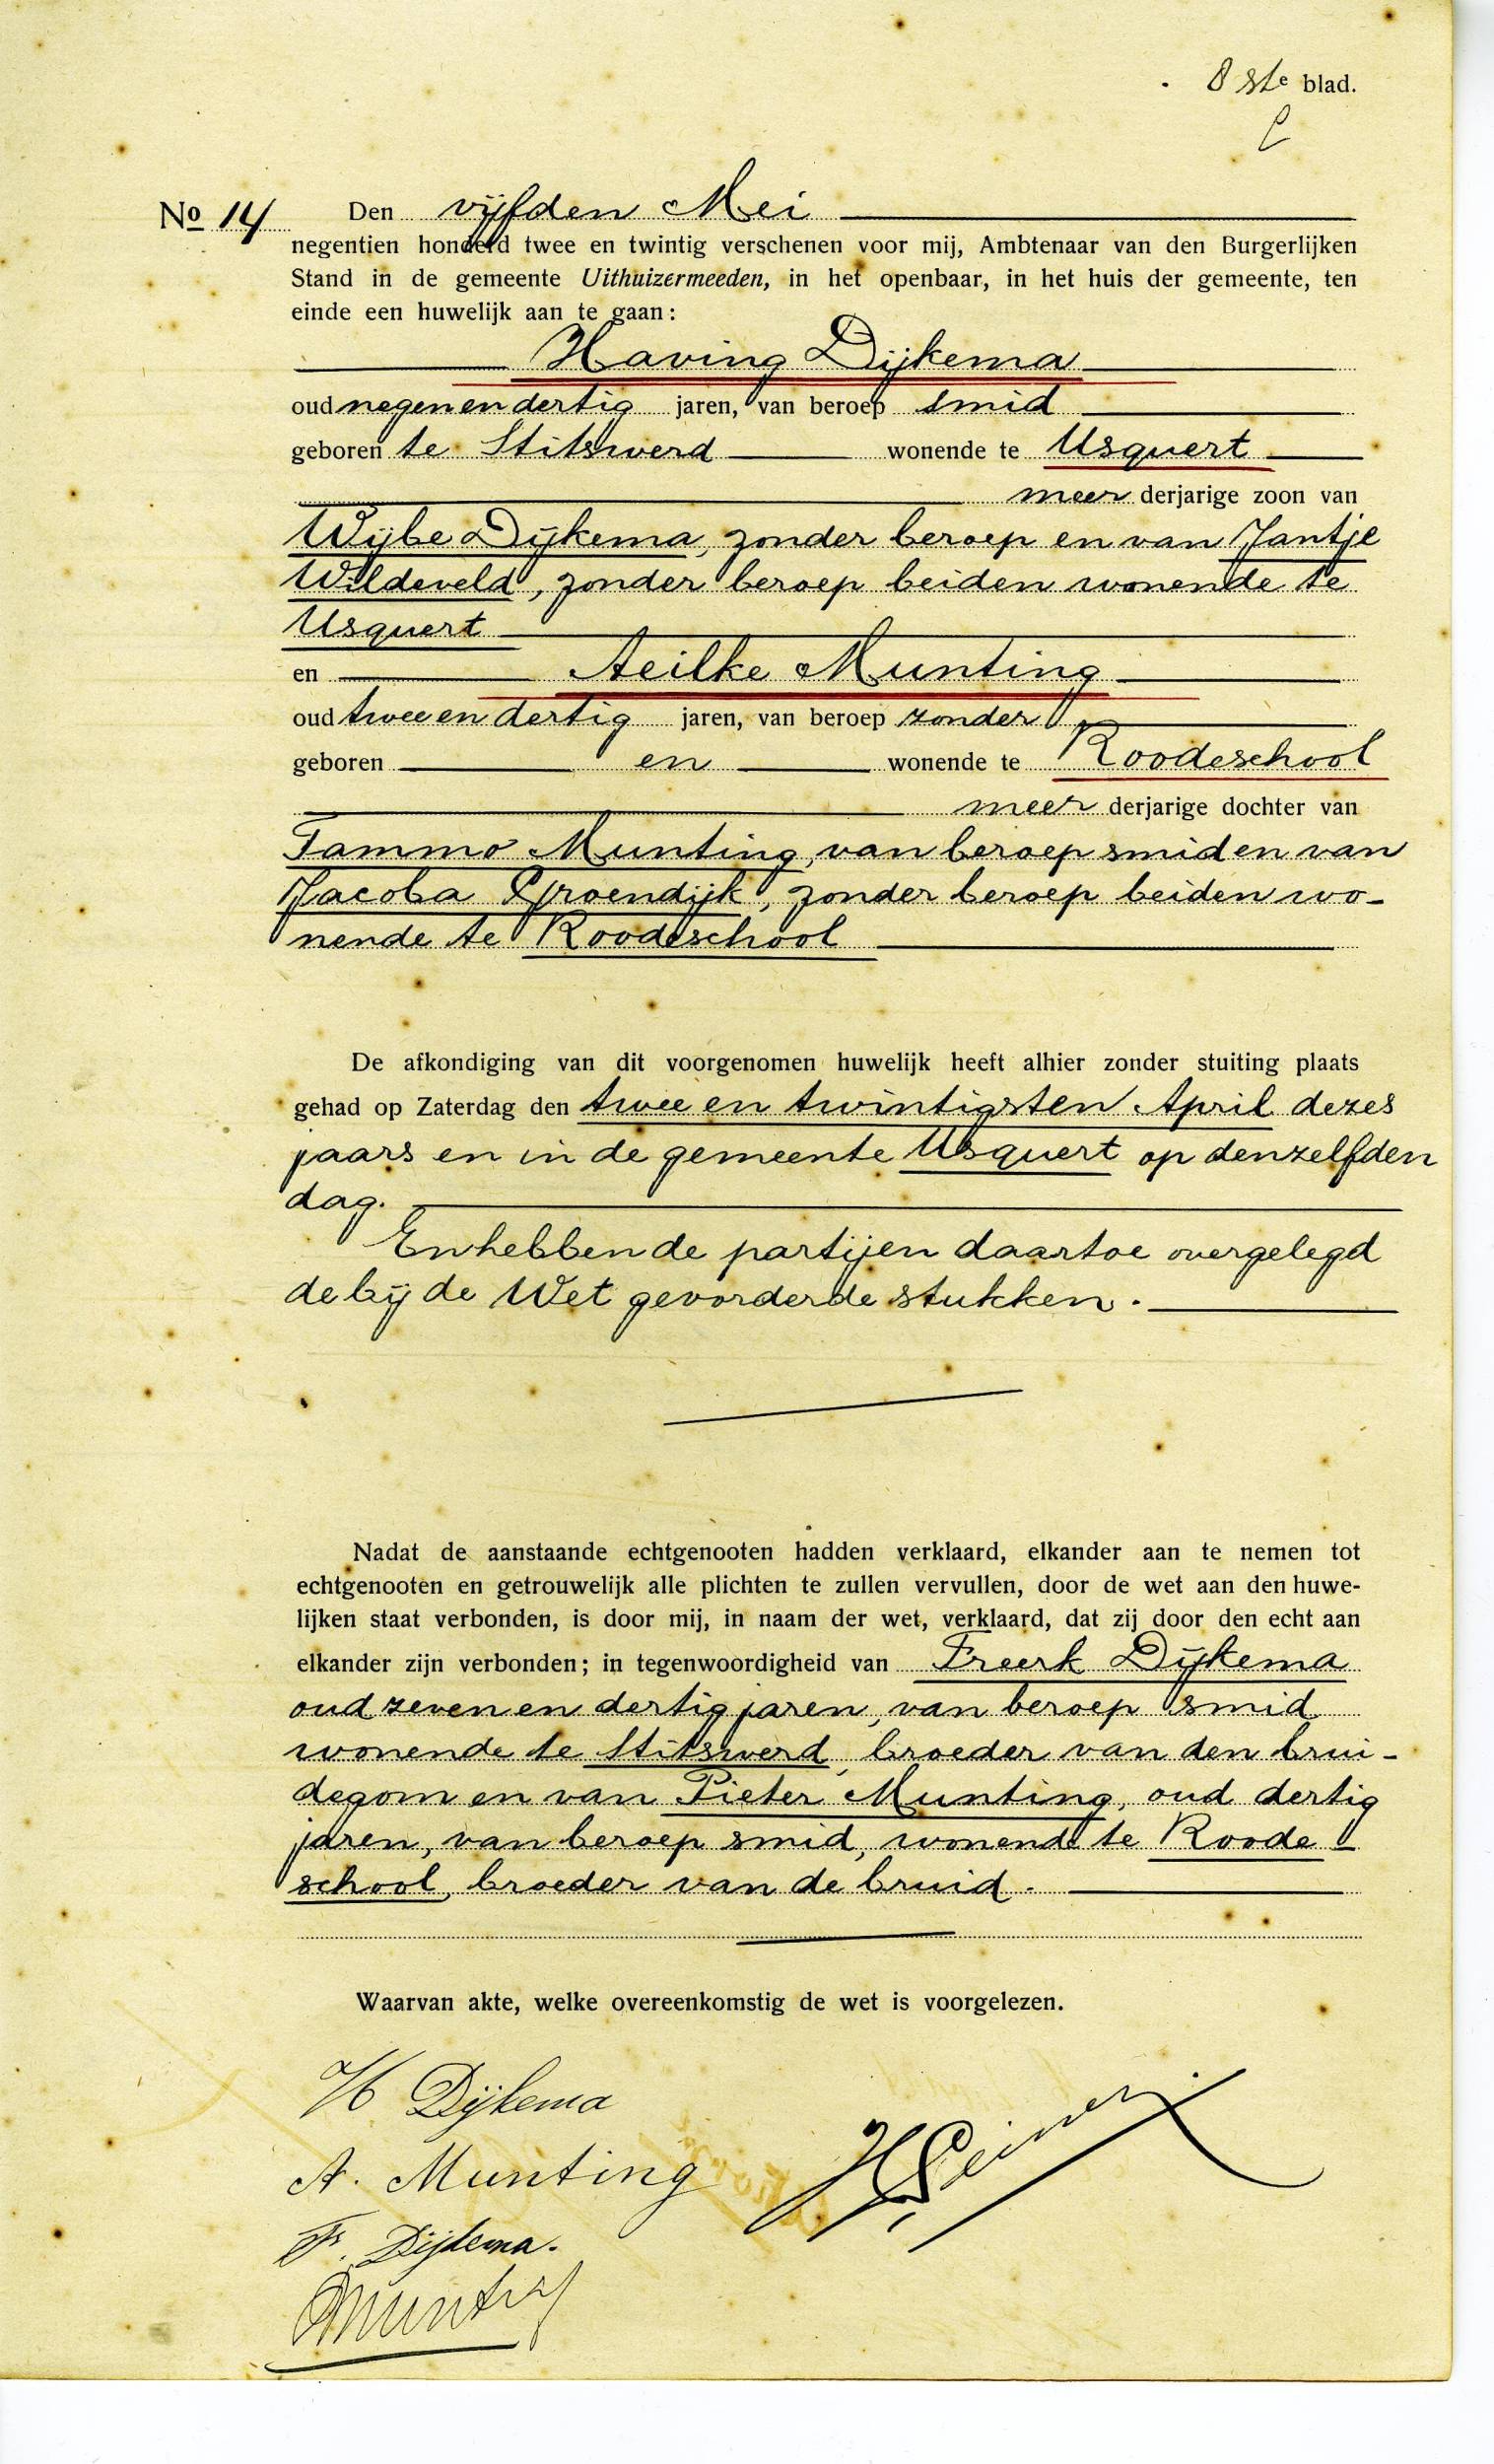 8ste blad.
No 14 Den vijfden Mei
negentien honderd twee en twintig verschenen voor mij, Ambtenaar van den Burgerlijken
Stand in de gemeente Uithuizermeeden, in het openbaar, in het huis der gemeente, ten
einde een huwelijk aan te gaan:
Having Dijkema
oud negenendertig jaren, van beroep smid
geboren te Stitswerd wonende te Usquert
meerderjarige zoon van
Wijbe Dijkema, zonder beroep en van Jantje
Wildeveld, zonder beroep beiden wonende te
Usquert
en Aeilke Munting
oud tweeendertig jaren, van beroep zonder
geboren en wonende te Roodeschool
meerderjarige dochter van
Tammo Munting, van beroep smid en van
Jacoba Groendijk, zonder beroep beiden wo-
nende te Roodeschool
De afkondiging van dit voorgenomen huwelijk heeft alhier zonder stuiting plaats
gehad op Zaterdag den twee en twintigsten April dezes
jaars en in de gemeente Usquert op denzelfden
dag.
En hebben de partijen daartoe overgelegd
de bij de Wet gevorderde stukken.
Nadat de aanstaande echtgenooten hadden verklaard, elkander aan te nemen tot
echtgenooten en getrouwelijk alle plichten te zullen vervullen, door de wet aan den huwe-
lijken staat verbonden, is door mij, in naam der wet, verklaard, dat zij door den echt aan
elkander zijn verbonden; in tegenwoordigheid van Freerk Dijkema
oud zeven en dertig jaren, van beroep smid
wonende te Stitswerd, broeder van den brui-
degom en van Pieter Munting, oud dertig
jaren, van beroep smid, wonende te Roode
school, broeder van de bruid.
Waarvan akte, welke overeenkomstig de wet is voorgelezen.
H Dijkema
A. Munting
F. Dijkema.
PMunting